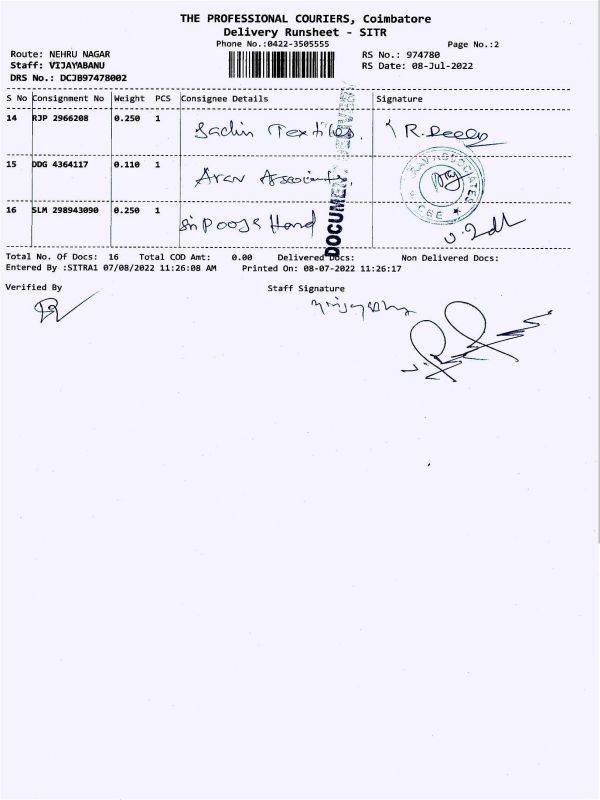 THE PROFESSIONAL COURIERS, Coimbatore
Delivery Runsheet - SITR
Phone No.:0422-3505555
Page No.:2
Route: NEHRU NAGAR
RS No.: 974780
Staff: VIJAYABANU
RS Date: 08-Jul-2022
DRS No.: DCJB97478002
S No Consignment No Weight PCS Consignee Details Signature
14 RJP 2966208 0.250 1 Sachin Textiles. R.Deepa
15 DDG 4364117 0.110 1 Arav Associates.
16 SLM 298943090 0.250 1 Sri Pooja Hand
DOCUMEN
CBE
Total No. Of Docs: 16 Total COD Amt: 0.00 Delivered Docs: Non Delivered Docs:
Entered By :SITRA1 07/08/2022 11:26:08 AM Printed On: 08-07-2022 11:26:17
Verified By Staff Signature